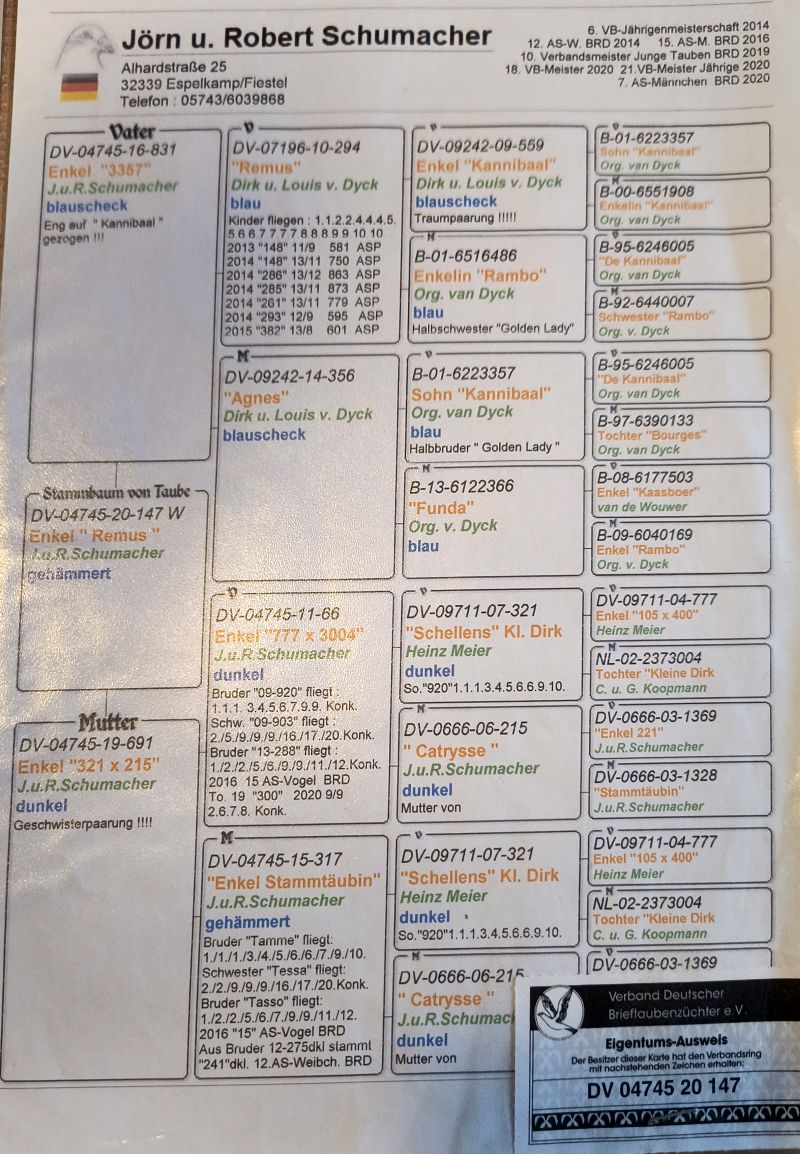 Jörn u. Robert Schumacher
Alhardstraße 25
32339 Espelkamp/Fiestel
Telefon : 05743/6039868
6. VB-Jährigenmeisterschaft 2014
12. AS-W. BRD 2014 15. AS-M. BRD 2016
10. Verbandsmeister Junge Tauben BRD 2019
18. VB-Meister 2020 21.VB-Meister Jährige 2020
7. AS-Männchen BRD 2020
Vater
DV-04745-16-831
Enkel "3357"
J.u.R.Schumacher
blauscheck
Eng auf " Kannibaal "
gezogen !!!
Stammbaum von Taube
DV-04745-20-147 W
Enkel " Remus "
J.u.R.Schumacher
gehämmert
Mutter
DV-04745-19-691
Enkel "321 x 215"
J.u.R.Schumacher
dunkel
Geschwisterpaarung !!!!
V
DV-07196-10-294
"Remus"
Dirk u. Louis v. Dyck
blau
Kinder fliegen : 1.1.2.2.4.4.4.5.
5 6 6 7 7 7 8 8 8 9 9 10 10
2013 "148" 11/9 581 ASP
2014 "148" 13/11 750 ASP
2014 "286" 13/12 863 ASP
2014 "285" 13/11 873 ASP
2014 "261" 13/11 779 ASP
2014 "293" 12/9 595 ASP
2015 "382" 13/8 601 ASP
M
DV-09242-14-356
"Agnes"
Dirk u. Louis v. Dyck
blauscheck
V
DV-04745-11-66
Enkel "777 x 3004"
J.u.R.Schumacher
dunkel
Bruder "09-920" fliegt :
1.1.1. 3.4.5.6.7.9.9. Konk.
Schw. "09-903" fliegt :
2./5./9./9./9./16./17./20.Konk.
Bruder "13-288" fliegt :
1./2./2./5./6./9./9./11./12.Konk.
2016 15 AS-Vogel BRD
To. 19 "300" 2020 9/9
2.6.7.8. Konk.
M
DV-04745-15-317
"Enkel Stammtäubin"
J.u.R.Schumacher
gehämmert
Bruder "Tamme" fliegt:
1./1./1./3./4./5./6./6./7./9./10.
Schwester "Tessa" fliegt:
2./2./9./9./9./16./17./20.Konk.
Bruder "Tasso" fliegt:
1./2./2./5./6./7./9./9./11./12.
2016 "15" AS-Vogel BRD
Aus Bruder 12-275dkl stammt
"241"dkl. 12.AS-Weibch. BRD
V
DV-09242-09-559
Enkel "Kannibaal"
Dirk u. Louis v. Dyck
blauscheck
Traumpaarung !!!!!
M
B-01-6516486
Enkelin "Rambo"
Org. van Dyck
blau
Halbschwester "Golden Lady"
V
B-01-6223357
Sohn "Kannibaal"
Org. van Dyck
blau
Halbbruder " Golden Lady "
M
B-13-6122366
"Funda"
Org. v. Dyck
blau
V
DV-09711-07-321
"Schellens" Kl. Dirk
Heinz Meier
dunkel
So."920"1.1.1.3.4.5.6.6.9.10.
M
DV-0666-06-215
" Catrysse "
J.u.R.Schumacher
dunkel
Mutter von
V
DV-09711-07-321
"Schellens" Kl. Dirk
Heinz Meier
dunkel
So."920"1.1.1.3.4.5.6.6.9.10.
M
DV-0666-06-215
" Catrysse "
J.u.R.Schumac
dunkel
Mutter von
V
B-01-6223357
Sohn "Kannibaal"
Org. van Dyck
M
B-00-6551908
Enkelin "Kannibaal"
Org. van Dyck
V
B-95-6246005
"De Kannibaal"
Org. van Dyck
M
B-92-6440007
Schwester "Rambo"
Org. v. Dyck
V
B-95-6246005
"De Kannibaal"
Org. van Dyck
M
B-97-6390133
Tochter "Bourges"
Org. van Dyck
V
B-08-6177503
Enkel "Kaasboer"
van de Wouwer
M
B-09-6040169
Enkel "Rambo"
Org. v. Dyck
V
DV-09711-04-777
Enkel "105 x 400"
Heinz Meier
M
NL-02-2373004
Tochter "Kleine Dirk
C. u. G. Koopmann
V
DV-0666-03-1369
"Enkel 221"
J.u.R.Schumacher
M
DV-0666-03-1328
"Stammtäubin"
J.u.R.Schumacher
V
DV-09711-04-777
Enkel "105 x 400"
Heinz Meier
M
NL-02-2373004
Tochter "Kleine Dirk
C. u. G. Koopmann
V
DV-0666-03-1369
Verband Deutscher
Brieftaubenzüchter e.V.
Eigentums-Ausweis
Der Besitzer dieser Karte hat den Verbandsring
mit nachstehenden Zeichen erhalten:
DV 04745 20 147